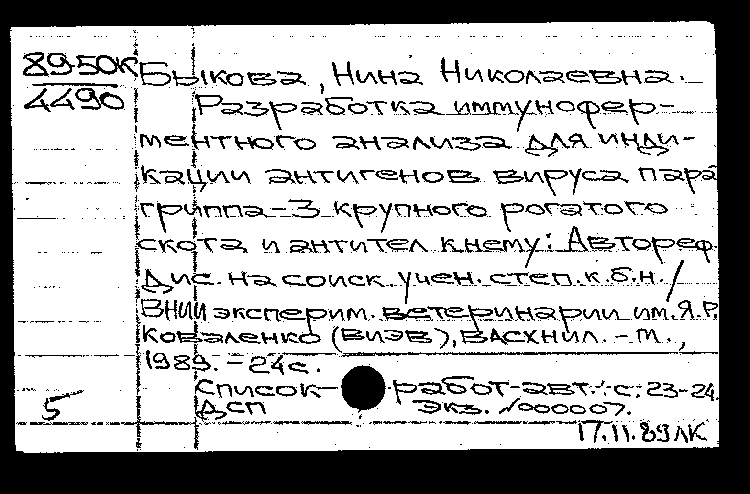 8950К Быкова, Нина Николаевна.
4490 Разработка иммунофер-
ментного анализа для инди-
кации антигенов вируса пара
гриппа-3 крупного рогатого
скота и антител к нему: Автореф.
дис. на соиск. учен. степ. к.б.н. /
ВНИИ эксперим. ветеринарии им. Я.Р.
Коваленко (ВИЭВ), ВАСХНИЛ. - М.,
1989. - 24 с.
Список работ авт.: с. 23-24.
5 ДСП Экз. №000007.
17.11.89 ЛК